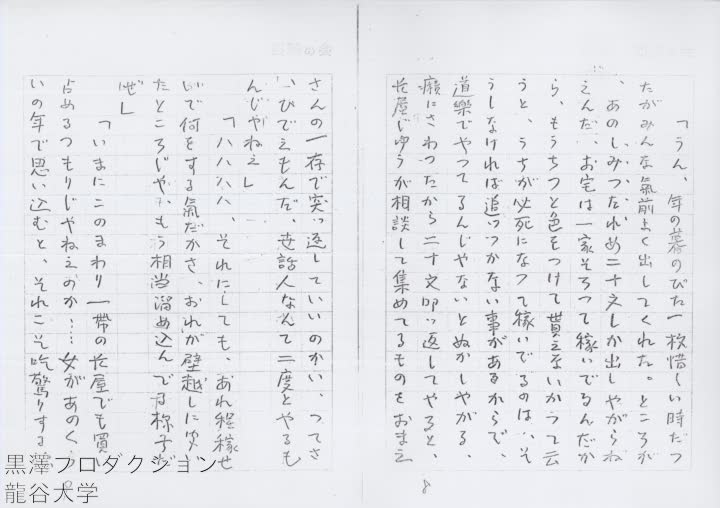 「うん、年の暮のびた一枚惜しい時だつ
たがみんな氣前よく出してくれた。ところが
、あのしみつたれめ二十文しか出しやがらね
えんだ、お宅は一家そろつて稼いでるんだか
ら、もうちつと色をつけて貰えないかつて云
うと、うちが必死になつて稼いでるのは、そ
うしなければ追つつかない事があるからで、
道樂でやつてるんじやないとぬかしやがる、
癪にさわつたから二十文叩つ返してやると、
長屋じゆうが相談して集めてるものをおまえ
8
さんの一存で突つ返していいのかい、つてさ
いびでえもんだ、世話人なんて二度とやるも
んじやねえ」
「ハハハハ、それにしても、あれ程稼せ
いで何をする氣だかさ、おれが壁越しに
たところじや、もう相当溜め込んで
ぜ」
「いまにこのまわり一帯の長屋でも買い
占めるつもりじやねえのか……女があのく
いの年で思い込むと、それこそ吃驚りする
黒澤プロダクション
龍谷大学